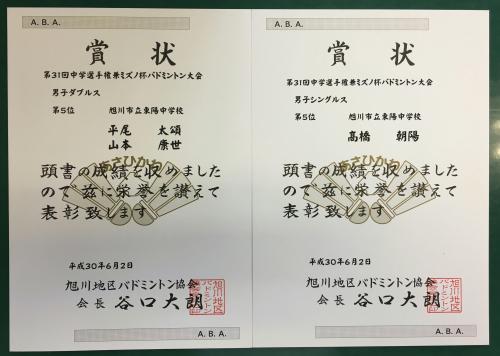 A.B.A.
賞状
第31回中学選手権兼ミズノ杯バドミントン大会
男子ダブルス
第5位 旭川市立東陽中学校
平尾 太頌
山本 康世
あさひかわ
頭書の成績を収めました
ので茲に栄誉を讃えて
表彰致します
平成30年6月2日
旭川地区バドミントン協会
会長 谷口大朗
旭川地区
バドミントン
協会印
A.B.A.
A.B.A.
賞状
第31回中学選手権兼ミズノ杯バドミントン大会
男子シングルス
第5位 旭川市立東陽中学校
髙橋 朝陽
あさひかわ
頭書の成績を収めました
ので茲に栄誉を讃えて
表彰致します
平成30年6月2日
旭川地区バドミントン協会
会長 谷口大朗
旭川地区
バドミントン
協会印
A.B.A.